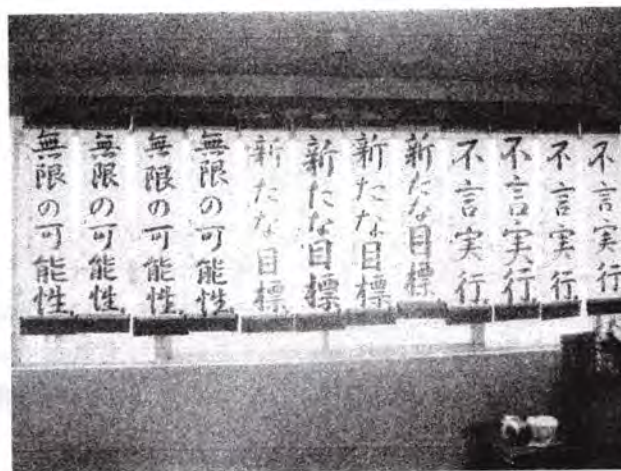 不言実行
不言実行
不言実行
不言実行
新たな目標
新たな目標
新たな目標
新たな目標
無限の可能性
無限の可能性
無限の可能性
無限の可能性